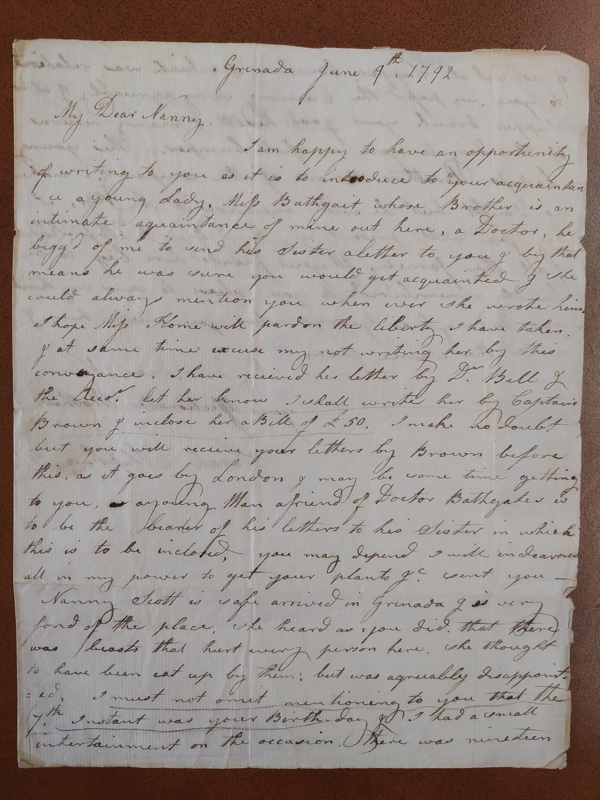 Grenada June 9th. 1792
My Dear Nanny
I am happy to have an opportunity
of writing to you as it is to introduce to your acquaintan
- ce a young Lady, Miss Bathgait, whose Brother is an
intimate aquaintance of mine out here, a Doctor, he
begg'd of me to send his Sister a letter to you & by that
means he was sure you would get acquainted & she
could always mention you when ever she wrote him,
I hope Miss Home will pardon the liberty I have taken.
& at same time excuse my not writing her by this
conveyance. I have recieved his letter by Dr. Bell &
the Acct. let her know I shall write her by Captain
Brown & inclose her a Bill of £50. I make no doubt
but you will receive your letters by Brown before
this, as it goes by London & may be some time getting
to you, a young Man a friend of Doctor Bathgates is
to be the bearer of his letters to his Sister in which
this is to be inclosed, you may depend I will endeavour
all in my power to get your plants &c sent you —
Nanny Scott is safe arrived in Grenada & is very
fond of the place she heard as you did, that there
was beasts that hurt every person here. she thought
to have been eat up by them, but was agreuably disappoint
= ed, I must not omit mentioning to you that the
7th Instant was your Birth-day & I had a small
entertainment on the occasion. there was nineteen